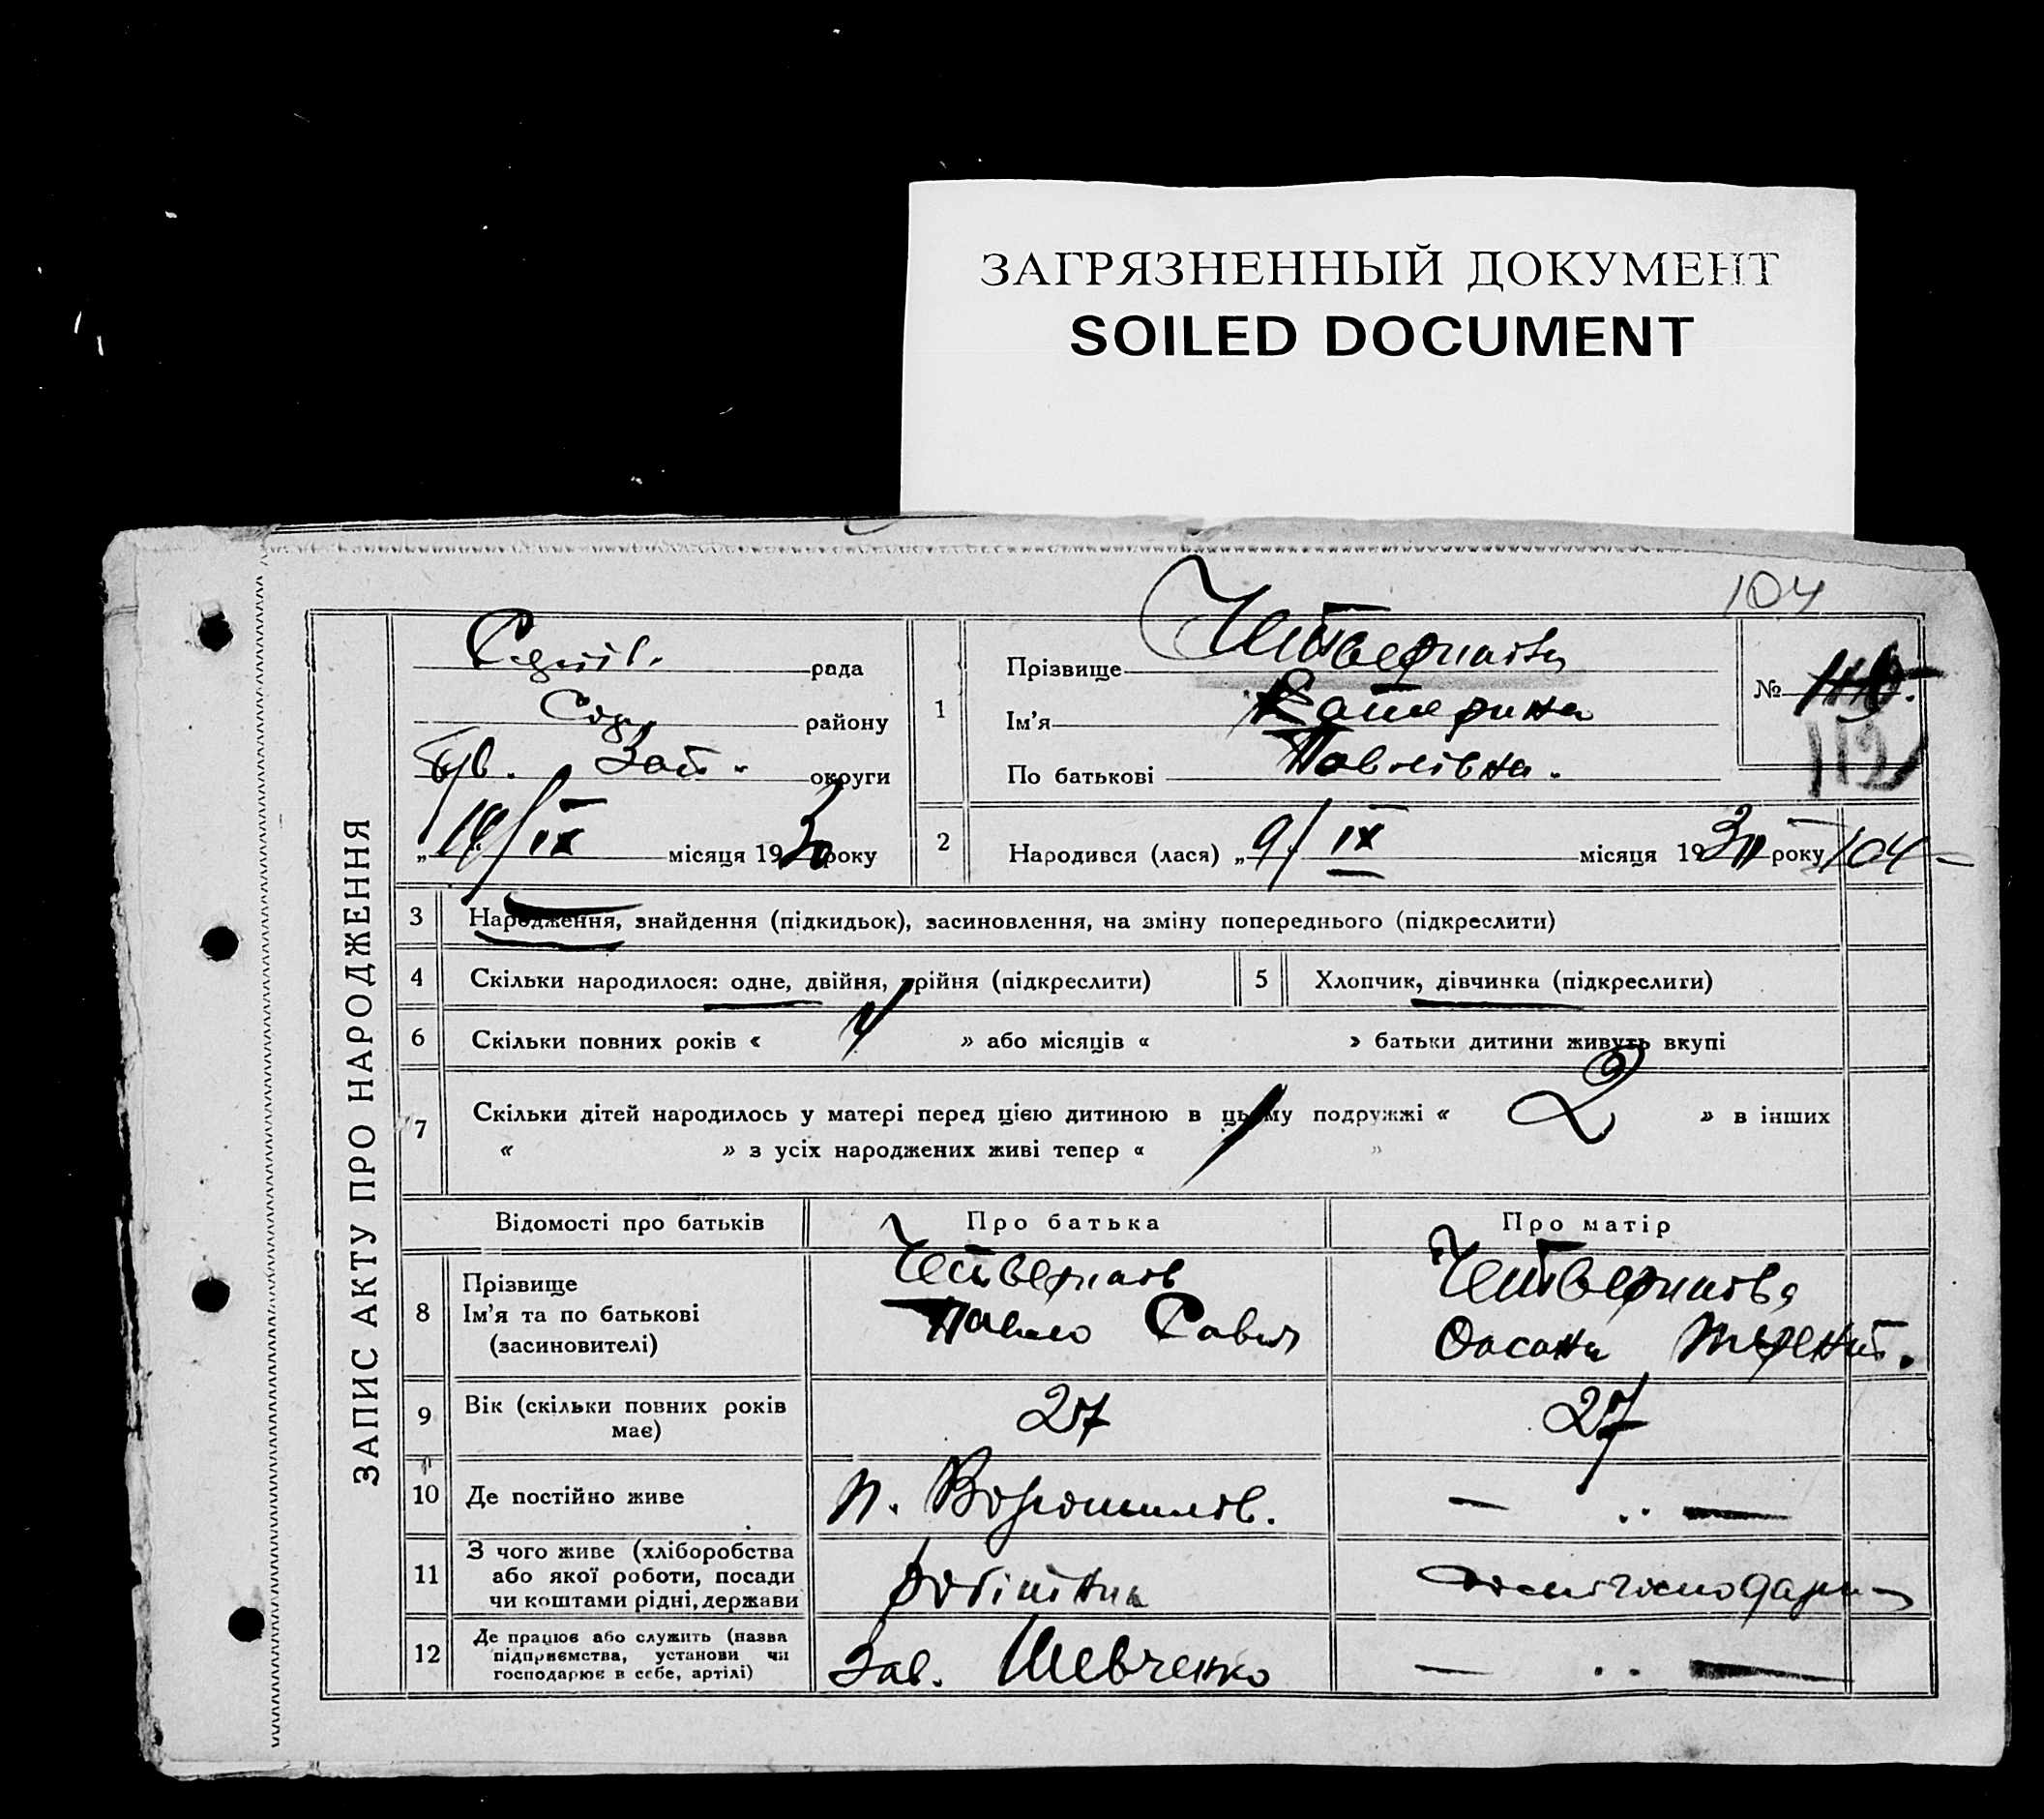 ЗАГРЯЗНЕННЫЙ ДОКУМЕНТ
SOILED DOCUMENT
104
ЗАПИС АКТУ ПРО НАРОДЖЕННЯ
рада
району
округи
„14/IX місяця 1930 року
1
Прізвище
Ім'я Катерина
По батькові Павлівна.
№
112
2
Народився (лася) „9/IX місяця 1930 року 104
3 Народження, знайдення (підкидьок), засиновлення, на зміну попереднього (підкреслити)
4 Скільки народилося: одне, двійня, трійня (підкреслити)
5 Хлопчик, дівчинка (підкреслити)
6 Скільки повних років « 4 » або місяців « » батьки дитини живуть вкупі
7 Скільки дітей народилось у матері перед цією дитиною в цьому подружжі « 2 » в інших
« » з усіх народжених живі тепер « »
Відомості про батьків Про батька Про матір
8
Прізвище
Ім'я та по батькові
(засиновителі)
Павло Сав
Оксана Терент.
9
Вік (скільки повних років
має)
27 27
10 Де постійно живе п. Ворошилов. — „ —
11
З чого живе (хліборобства
або якої роботи, посади
чи коштами рідні, держави
домогосподарк
12
Де працює або служить (назва
підприємства, установи чи
господарює в себе, артілі)
Зав. Шевченко — „ —